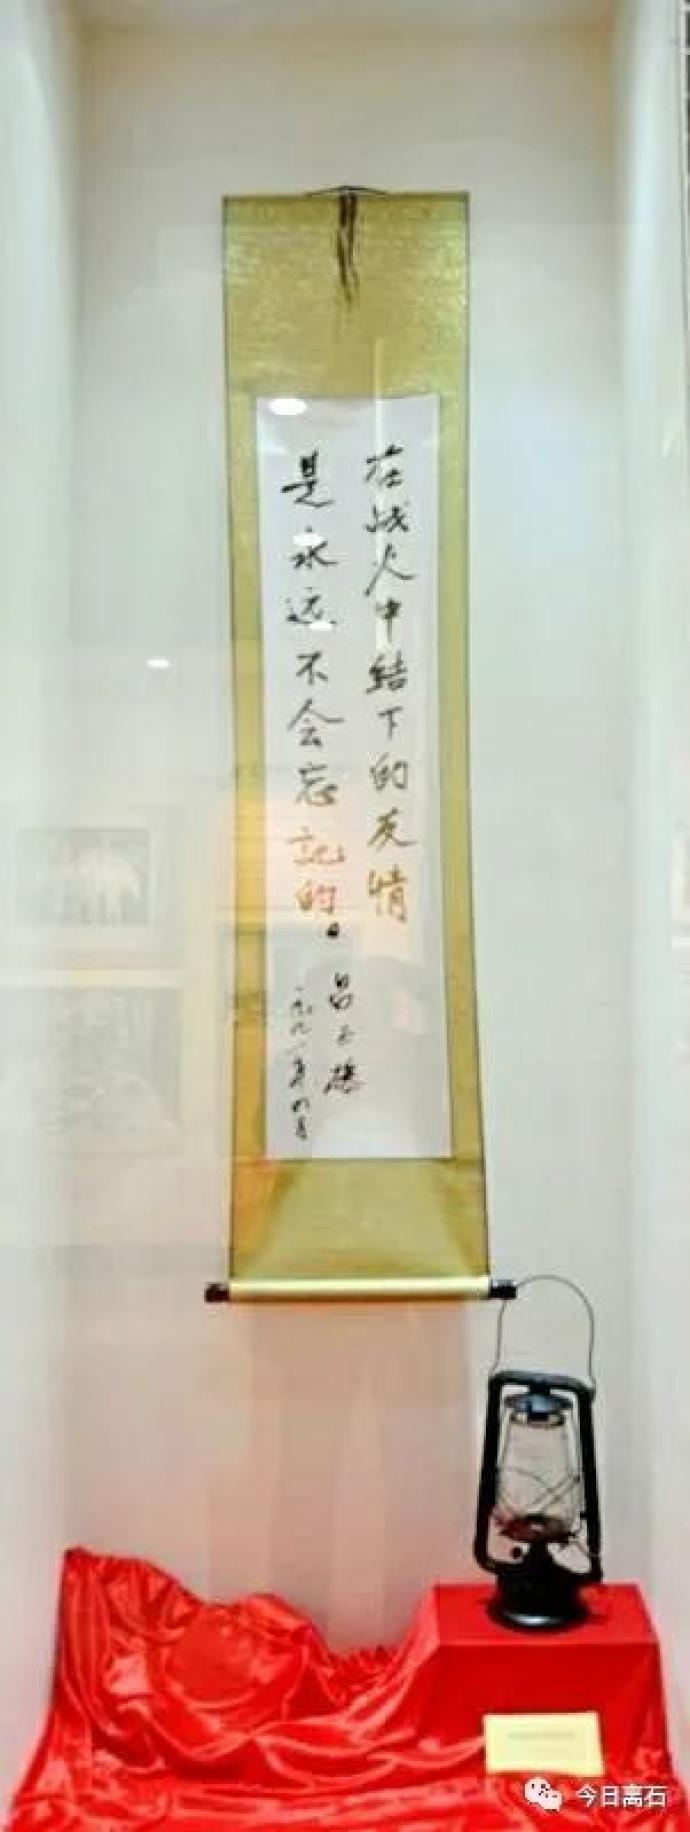 在战火中结下的友情
是永远不会忘记的。
今日离石